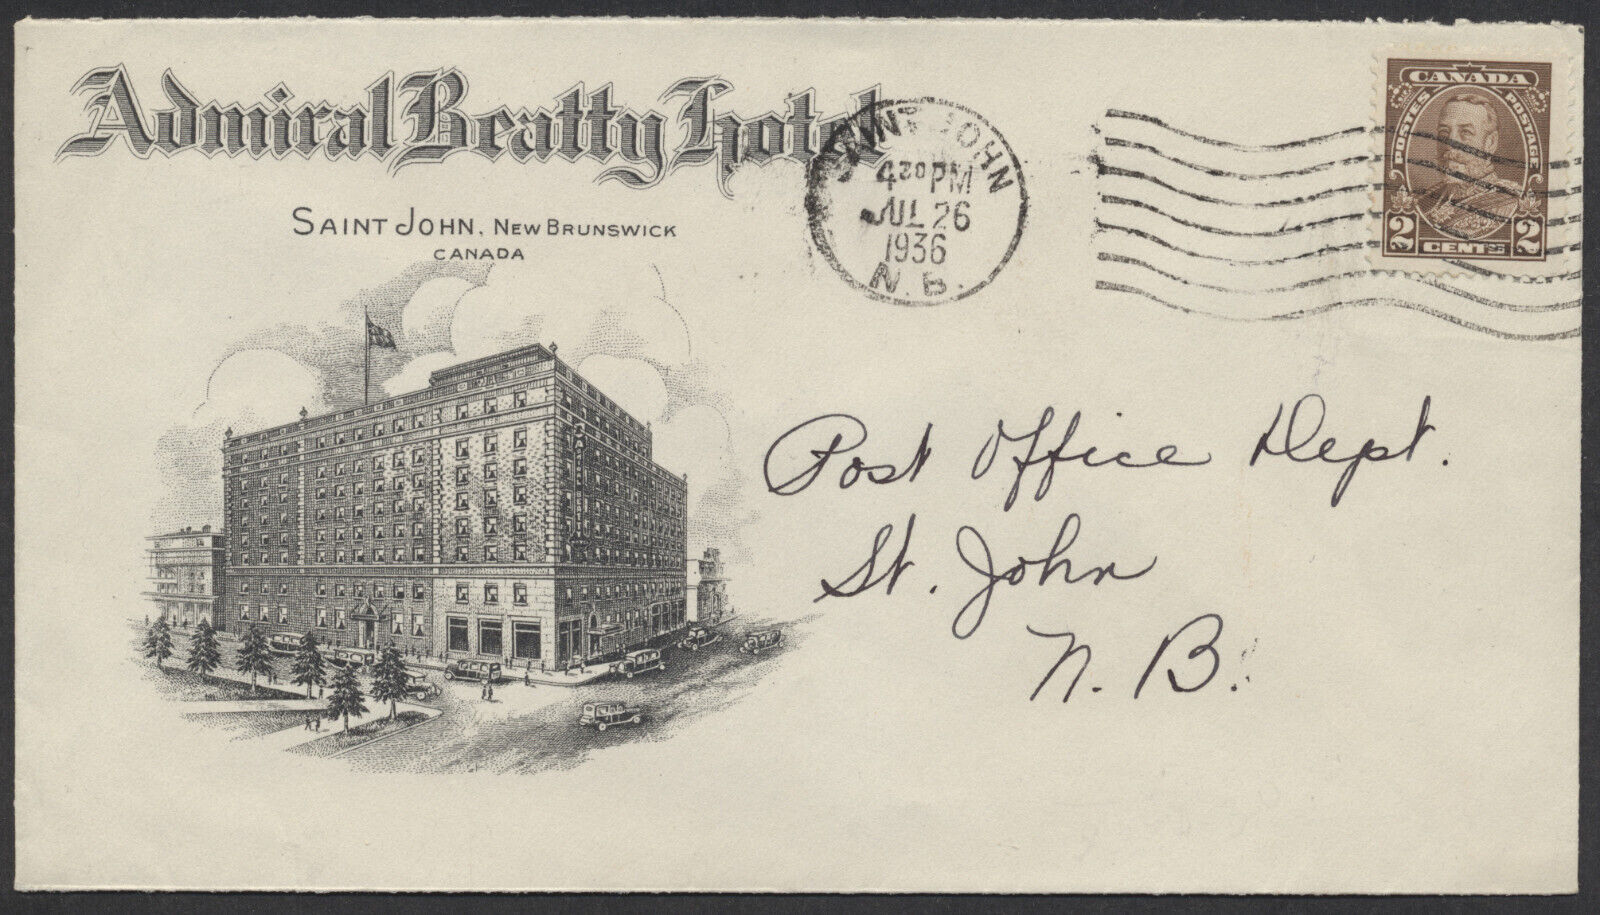 Admiral Beatty Hotel
SAINT JOHN, NEW BRUNSWICK
CANADA
SAINT JOHN
4 20 PM
JUL 26
1936
N.B.
CANADA
POSTES POSTAGE
2 CENTS 2
Post Office Dept.
St. John
N. B.